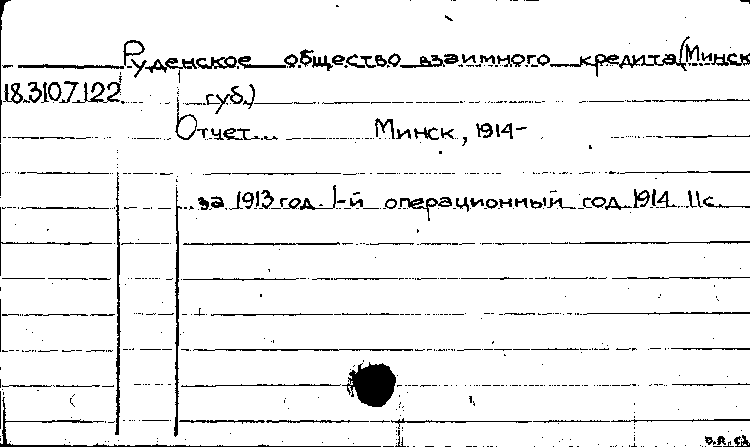 Руденское общество взаимного кредита (Минск
18.310.7.122 губ.)
Отчет... Минск, 1914-
за 1913 год. 1-й операционный год. 1914. 11с.